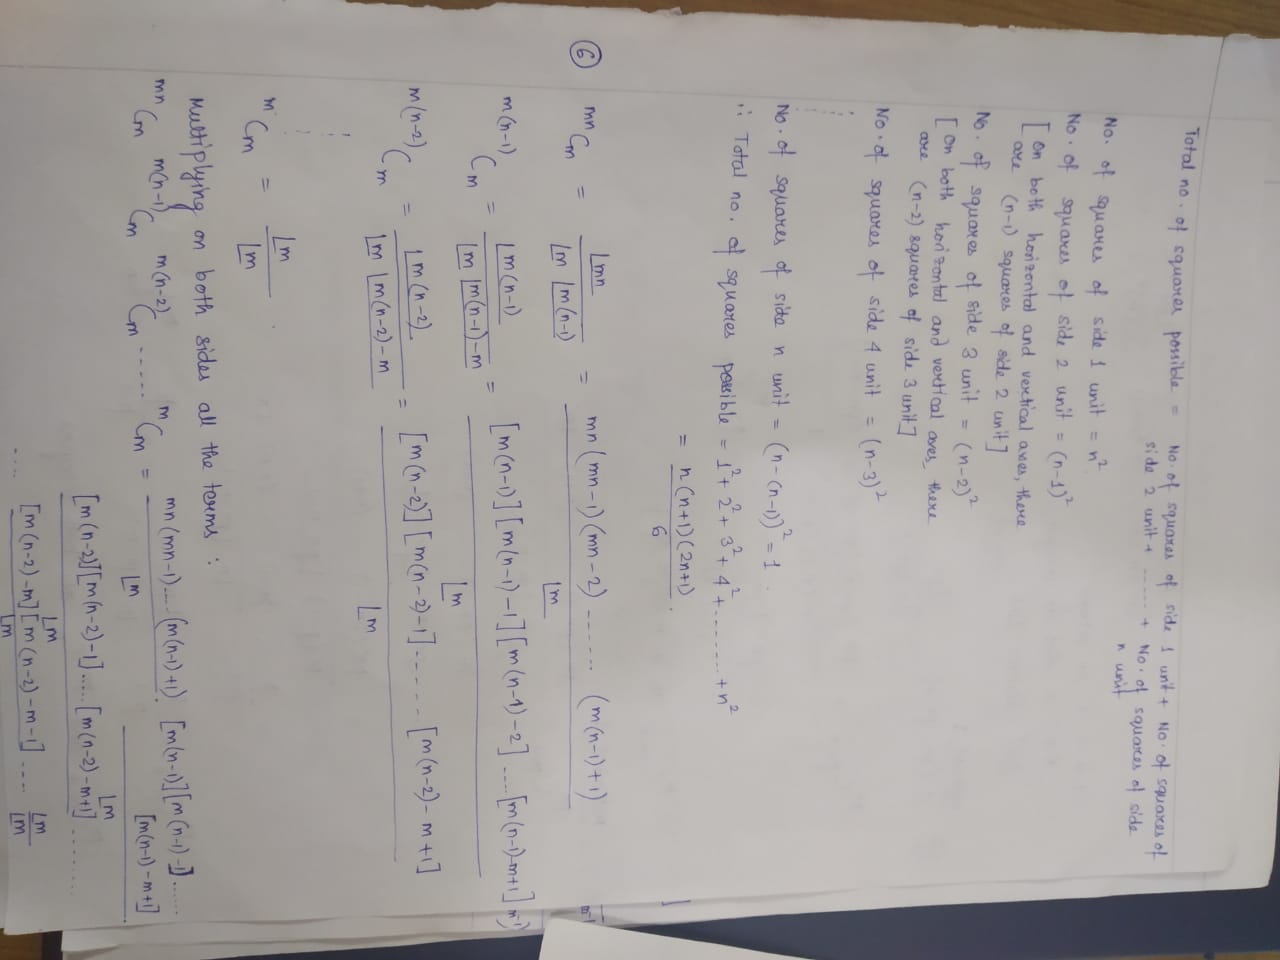 Total no. of squares possible = No. of squares of side 1 unit + No. of squares of
side 2 unit + ...... + No. of squares of side
n unit
No. of squares of side 1 unit = n²
No. of squares of side 2 unit = (n-1)²
[on both horizontal and vertical axes, there
are (n-1) squares of side 2 unit]
No. of squares of side 3 unit = (n-2)²
[on both horizontal and vertical axes, there
are (n-2) squares of side 3 unit]
No. of squares of side 4 unit = (n-3)²
No. of squares of side n unit = (n-(n-1))² = 1.
∴ Total no. of squares possible = 1² + 2² + 3² + 4² + ....... + n²
= n(n+1)(2n+1) / 6.
⑥ ᵐⁿCₘ = |mn / |m |m(n-1) = mn(mn-1)(mn-2) ...... (m(n-1)+1) / |m
ᵐ⁽ⁿ⁻¹⁾Cₘ = |m(n-1) / |m |m(n-1)-m = [m(n-1)][m(n-1)-1][m(n-1)-2] .... [m(n-1)-m+1] / |m
ᵐ⁽ⁿ⁻²⁾Cₘ = |m(n-2) / |m |m(n-2)-m = [m(n-2)][m(n-2)-1] ...... [m(n-2)-m+1] / |m
ᵐCₘ = |m / |m
Multiplying on both sides all the terms :
ᵐⁿCₘ ᵐ⁽ⁿ⁻¹⁾Cₘ ᵐ⁽ⁿ⁻²⁾Cₘ ...... ᵐCₘ = mn(mn-1).... (m(n-1)+1) / |m . [m(n-1)][m(n-1)-1] ...... [m(n-1)-m+1] / |m
[m(n-2)][m(n-2)-1] ..... [m(n-2)-m+1] / |m ........
.... [m(n-2)-m][m(n-2)-m-1] .... / |m |m / |m